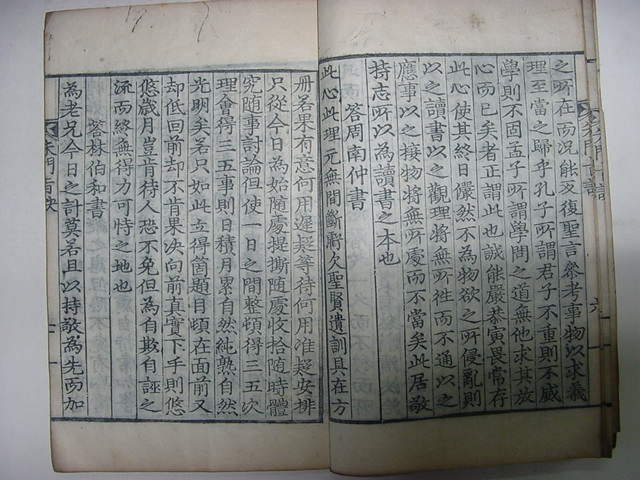 之所在而況能反復聖言參考事物以求義
理至當之歸乎孔子所謂君子不重則不威
學則不固孟子所謂學問之道無他求其放
心而已矣者正謂此也誠能嚴恭寅畏常存
此心使其終日儼然不為物欲之所侵亂則
以之讀書以之觀理將無所徃而不通以之
應事以之接物將無所處而不當矣此居敬
持志所以為讀書之本也
答周南仲書
此心此理元無間斷虧欠聖賢遺訓具在方
冊若果有意何用遲疑等待何用准擬安排
只從今日為始隨處提撕隨處收拾隨時體
究隨事討論但使一日之間整頓得三五次
理會得三五事則日積月累自然純熟自然
光明矣若只如此立得箇題目頓在面前又
却低回前却不肯果決向前真實下手則悠
悠歲月豈肯待人恐不免但為自欺自誣之
流而終無得力可恃之地也
答林伯和書
為老兄今日之計莫若且以持敬為先而加
朱門旨訣